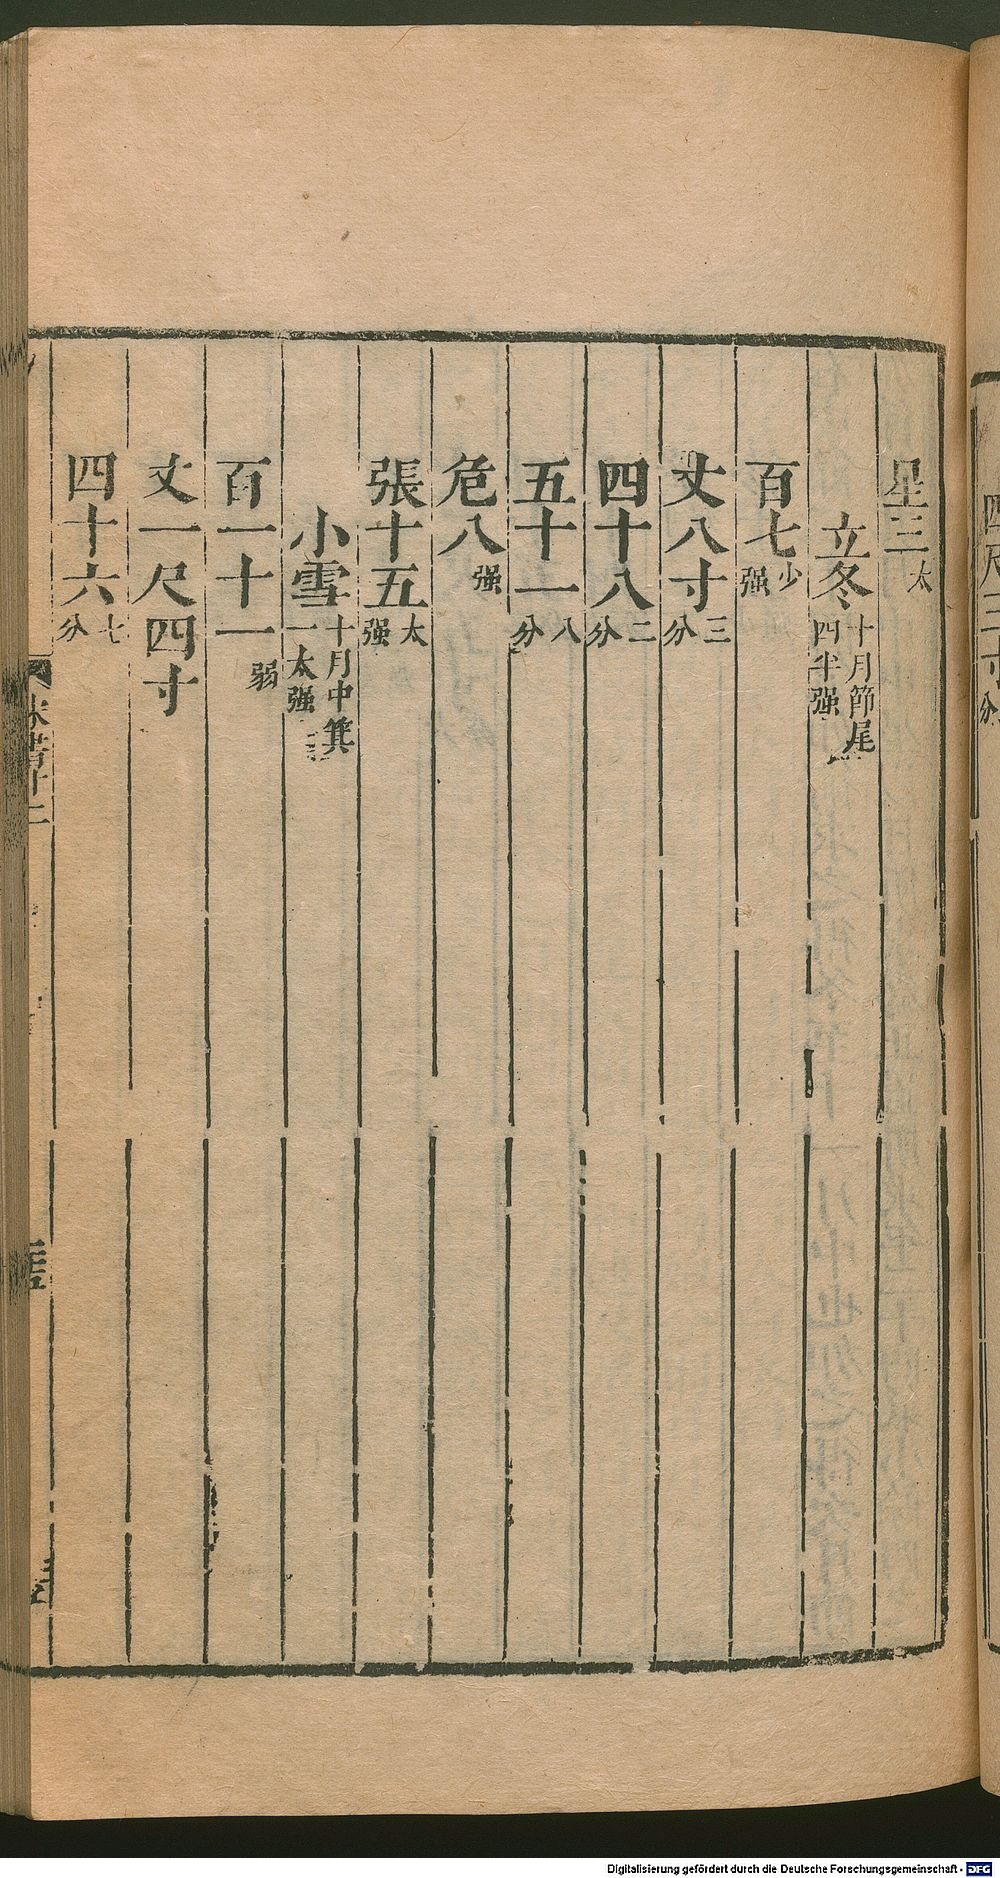 星三太
立冬十月節尾四半强
百七少强
丈八寸三分
四十八二分
五十一八分
危八强
張十五太强
小雪十月中箕一太强
百一十一弱
丈一尺四寸
四十六七分
Digitalisierung gefördert durch die Deutsche Forschungsgemeinschaft - DFG